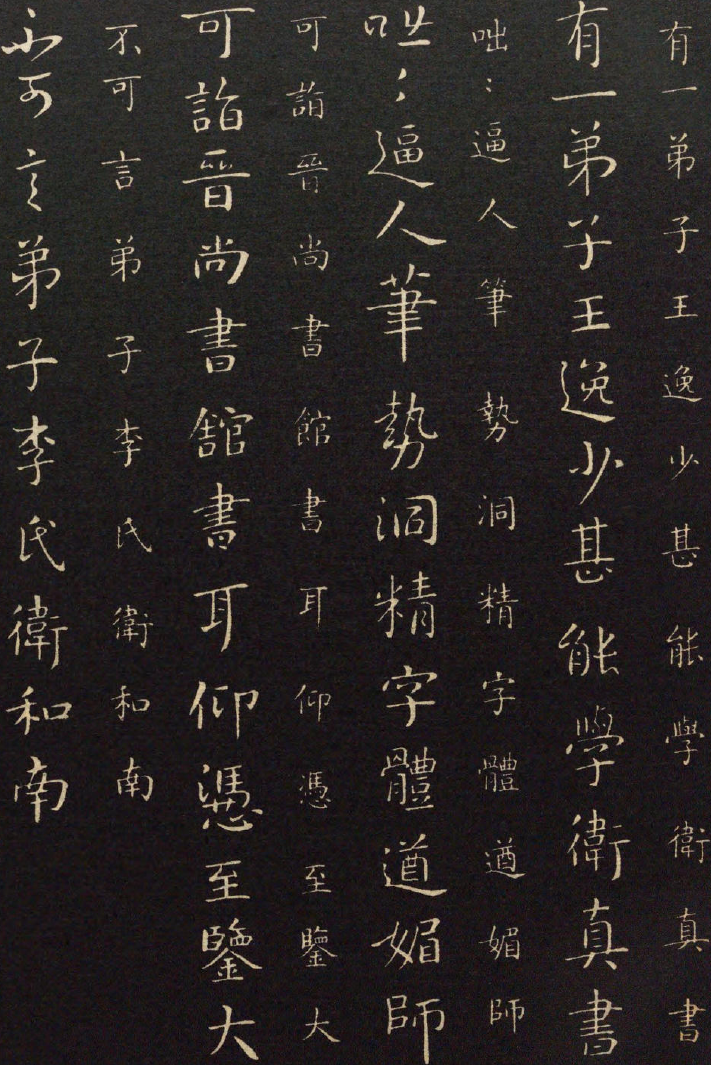 有一弟子王逸少甚能學衛真書
有一弟子王逸少甚能學衛真書
咄：逼人筆勢洞精字體遒媚師
咄：逼人筆勢洞精字體遒媚師
可詣晉尚書館書耳仰憑至鑒大
可詣晉尚書舘書耳仰憑至鑒大
不可言弟子李氏衛和南
不可言弟子李氏衛和南